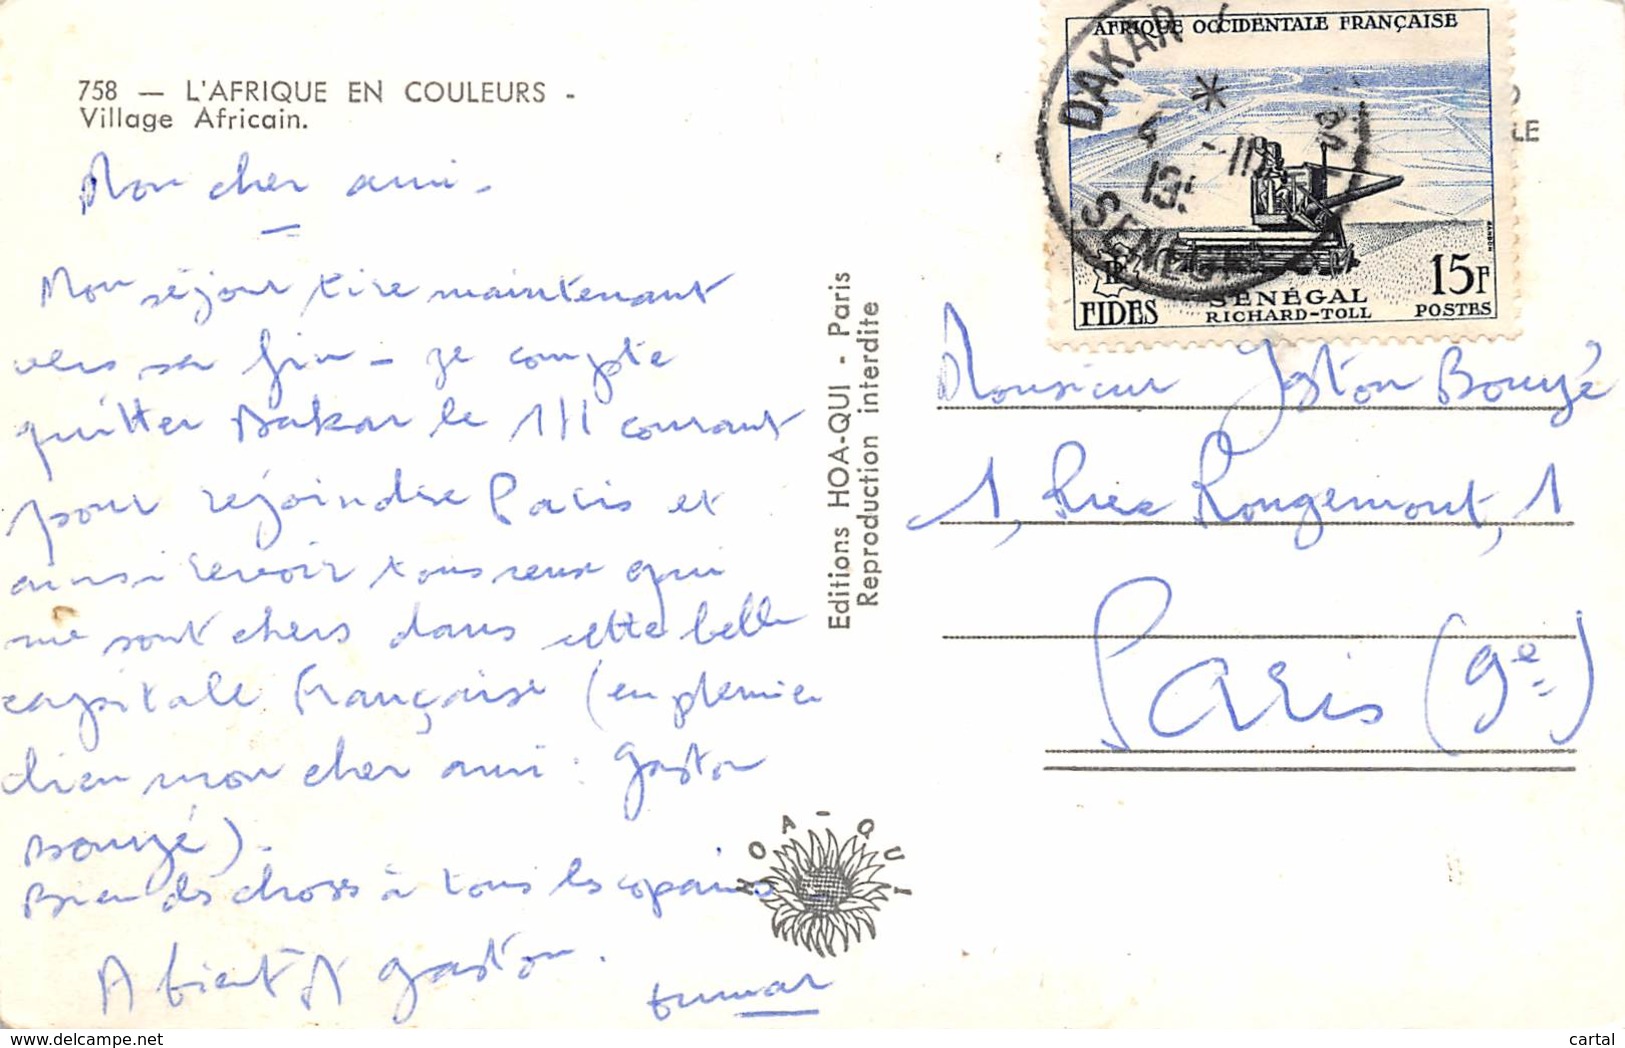 758 — L'AFRIQUE EN COULEURS -
Village Africain.
Mon cher ami -
Mon séjour tire maintenant
vers sa fin - je compte
quitter Dakar le 111 courant
pour rejoindre Paris et
ainsi revoir tous ceux qui
me sont chers dans cette belle
capitale française (en premier
lieu mon cher ami : Gaston
Bouyé).
Bien des choses à tous les copains
A bientôt Gaston.
Editions HOA-QUI - Paris
Reproduction interdite
HOA-QUI
AFRIQUE OCCIDENTALE FRANÇAISE
FIDES
SÉNÉGAL
RICHARD-TOLL
15F
POSTES
DAKAR
SENEGAL
LE
Monsieur Gaston Bouyé
1, Rue Rougemont, 1
Paris (9e)
delcampe.net
cartal